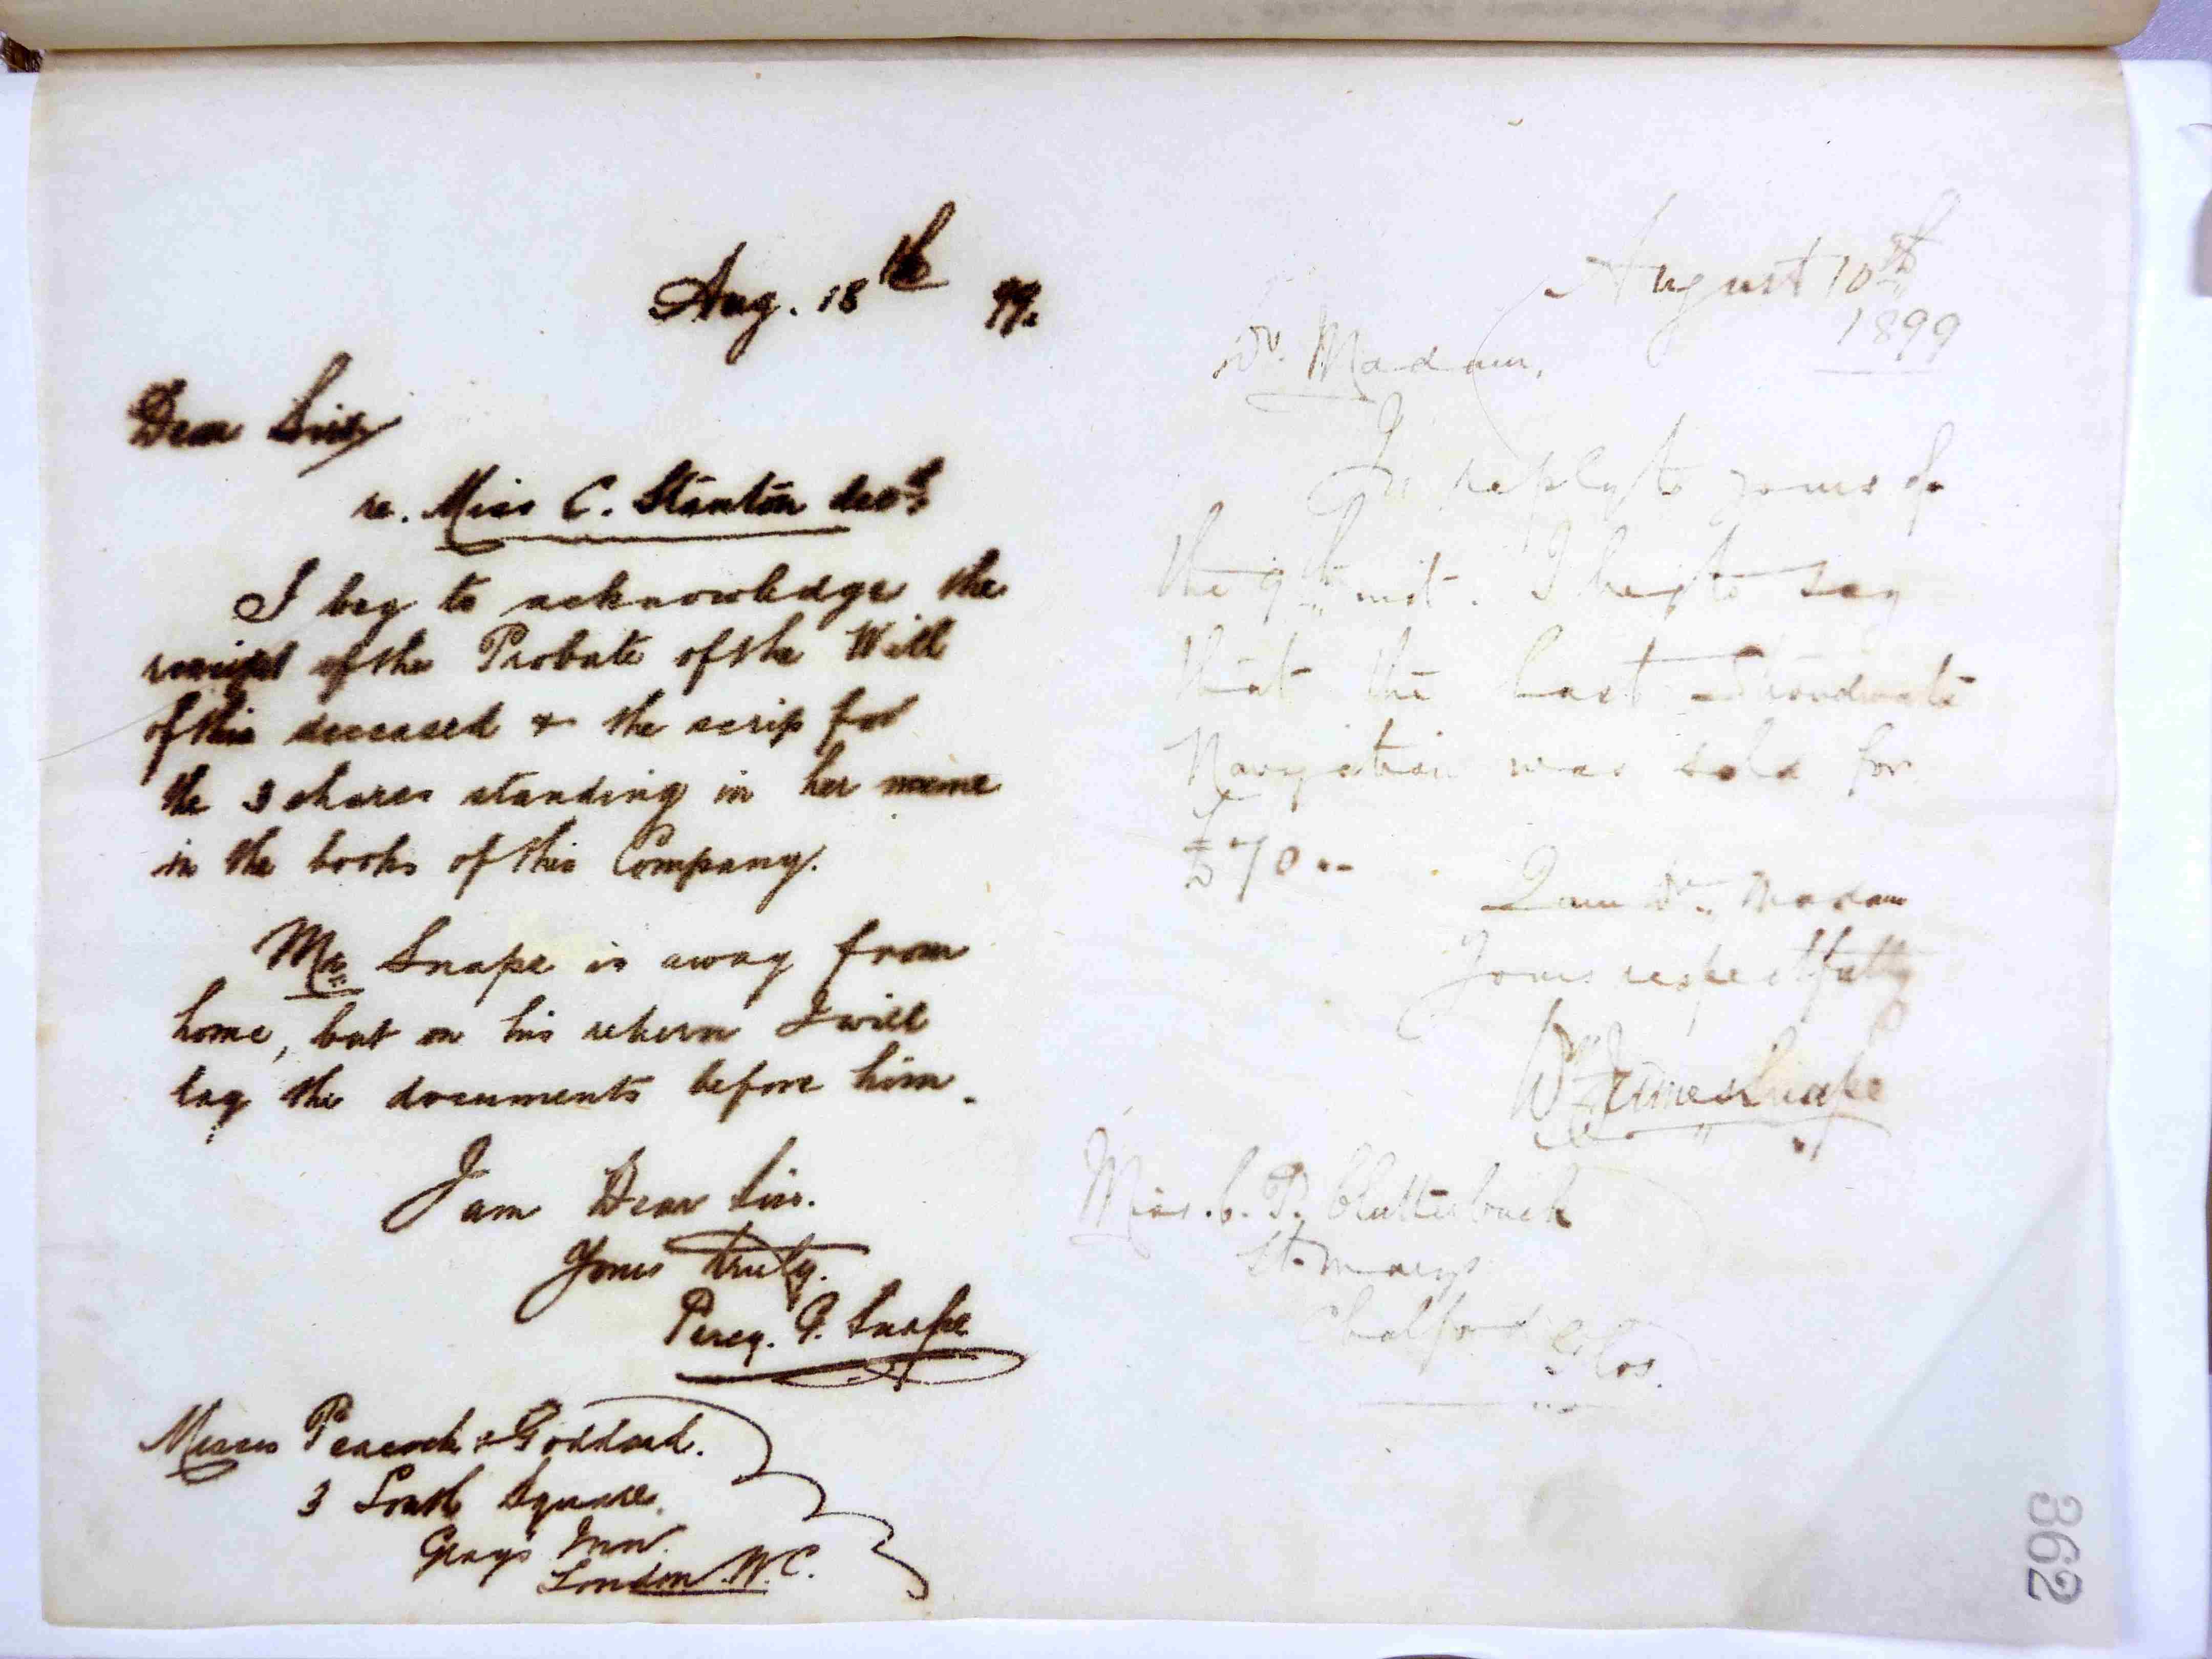 Aug. 18th 99.
Dear Sirs,
re. Miss C. Stanton decd.
I beg to acknowledge the
receipt of the Probate of the Will
of this deceased & the scrip for
the 3 shares standing in her name
in the books of this Company.
Mr Snape is away from
home, but on his return I will
lay the documents before him.
I am Dear Sirs.
Yours truly.
Percy. G. Snape
Messrs Peacock & Goddard.
3 South Square.
Grays Inn.
London. W.C.
August 10th
1899
Dr. Madam,
In reply to yours of
the 9th inst. I beg to say
that the last Stroudwater
Navigation was sold for
£70
I am Dr. Madam
Yours respectfully
Wm James Snape
Miss. C. P. Clutterbuck
St. Marys
Chalford
Glos.
362